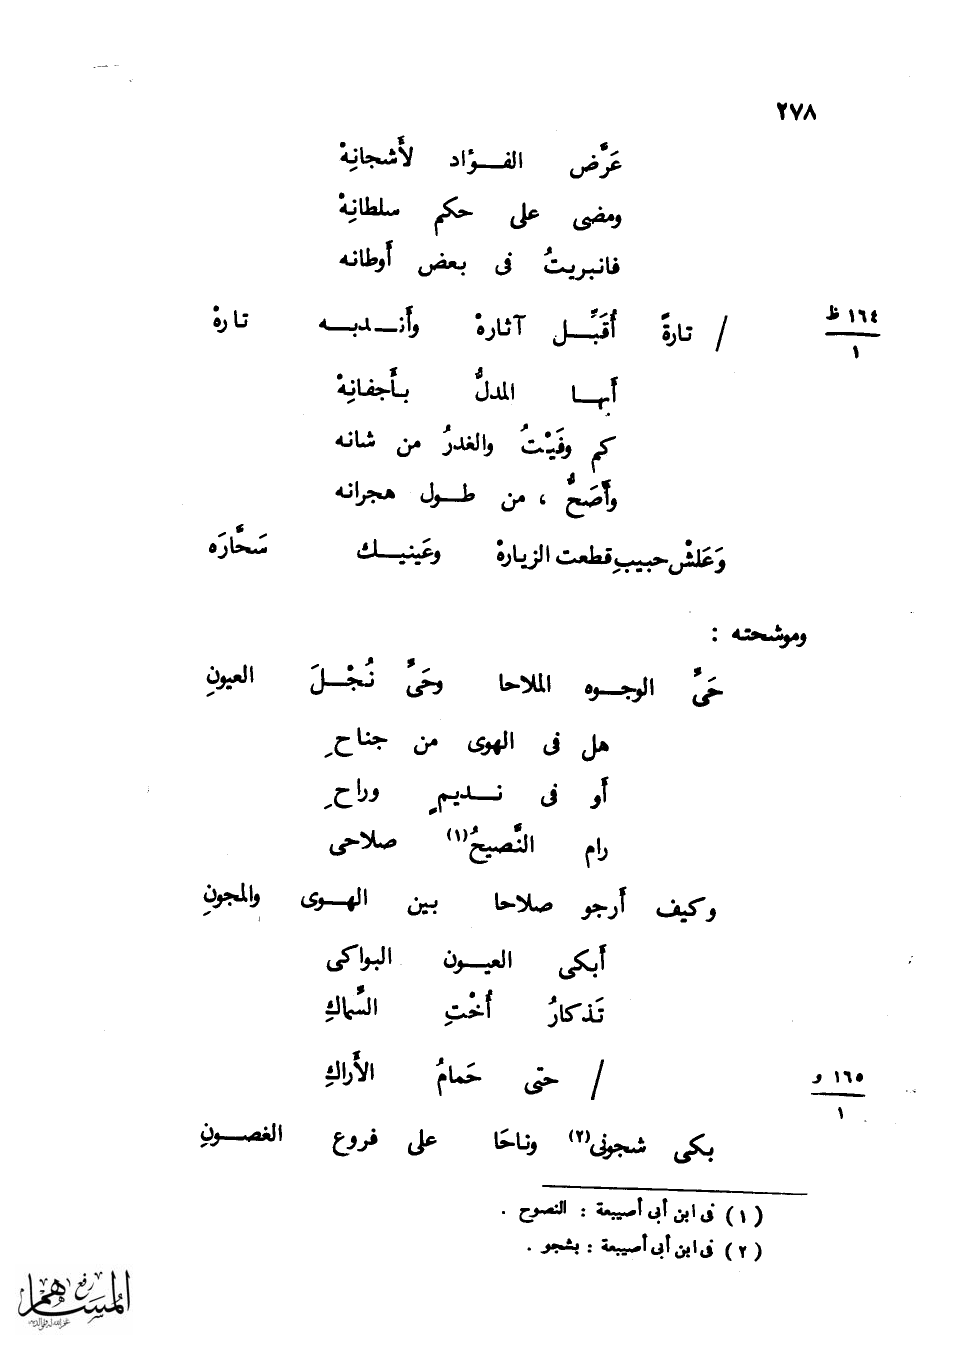 ٢٧٨
عَرَّض الفــؤاد لأَشجانِهْ
ومضى على حكم سلطانِهْ
فانبريتُ فى بعض أَوطانه
١٦٤ ظ
١
/ تارةً أُقَبِّـــل آثارهْ وأَنــدبــه تارهْ
أَيهــا المدلُّ بـأَجفانِهْ
كم وفَيْتُ والغدرُ من شانه
وأَصَحُّ ، من طــول هجرانه
وَعَلشْ حبيبِ قطعت الزيارهْ وعَينيــك سَحَّارَه
وموشحته :
حَىِّ الوجــوه الملاحا وحَىِّ نُجْــلَ العيونِ
هل فى الهوى من جناحِ
أَو فى نــديمٍ وراحِ
رام النَّصيحُ(١) صلاحى
وكيف أَرجو صلاحا بين الهــوى والمجونِ
أَبكى العيــون البواكى
تَذكارُ أُخْتِ السَّماكِ
١٦٥ و
١
/ حتى حَمامُ الأَراكِ
بكى شجونى(٢) وناحَا على فروع الغصــونِ
(١) فى ابن أبى أصيبعة : النصوح .
(٢) فى ابن أبى أصيبعة : بشجو .
رفع المساهم